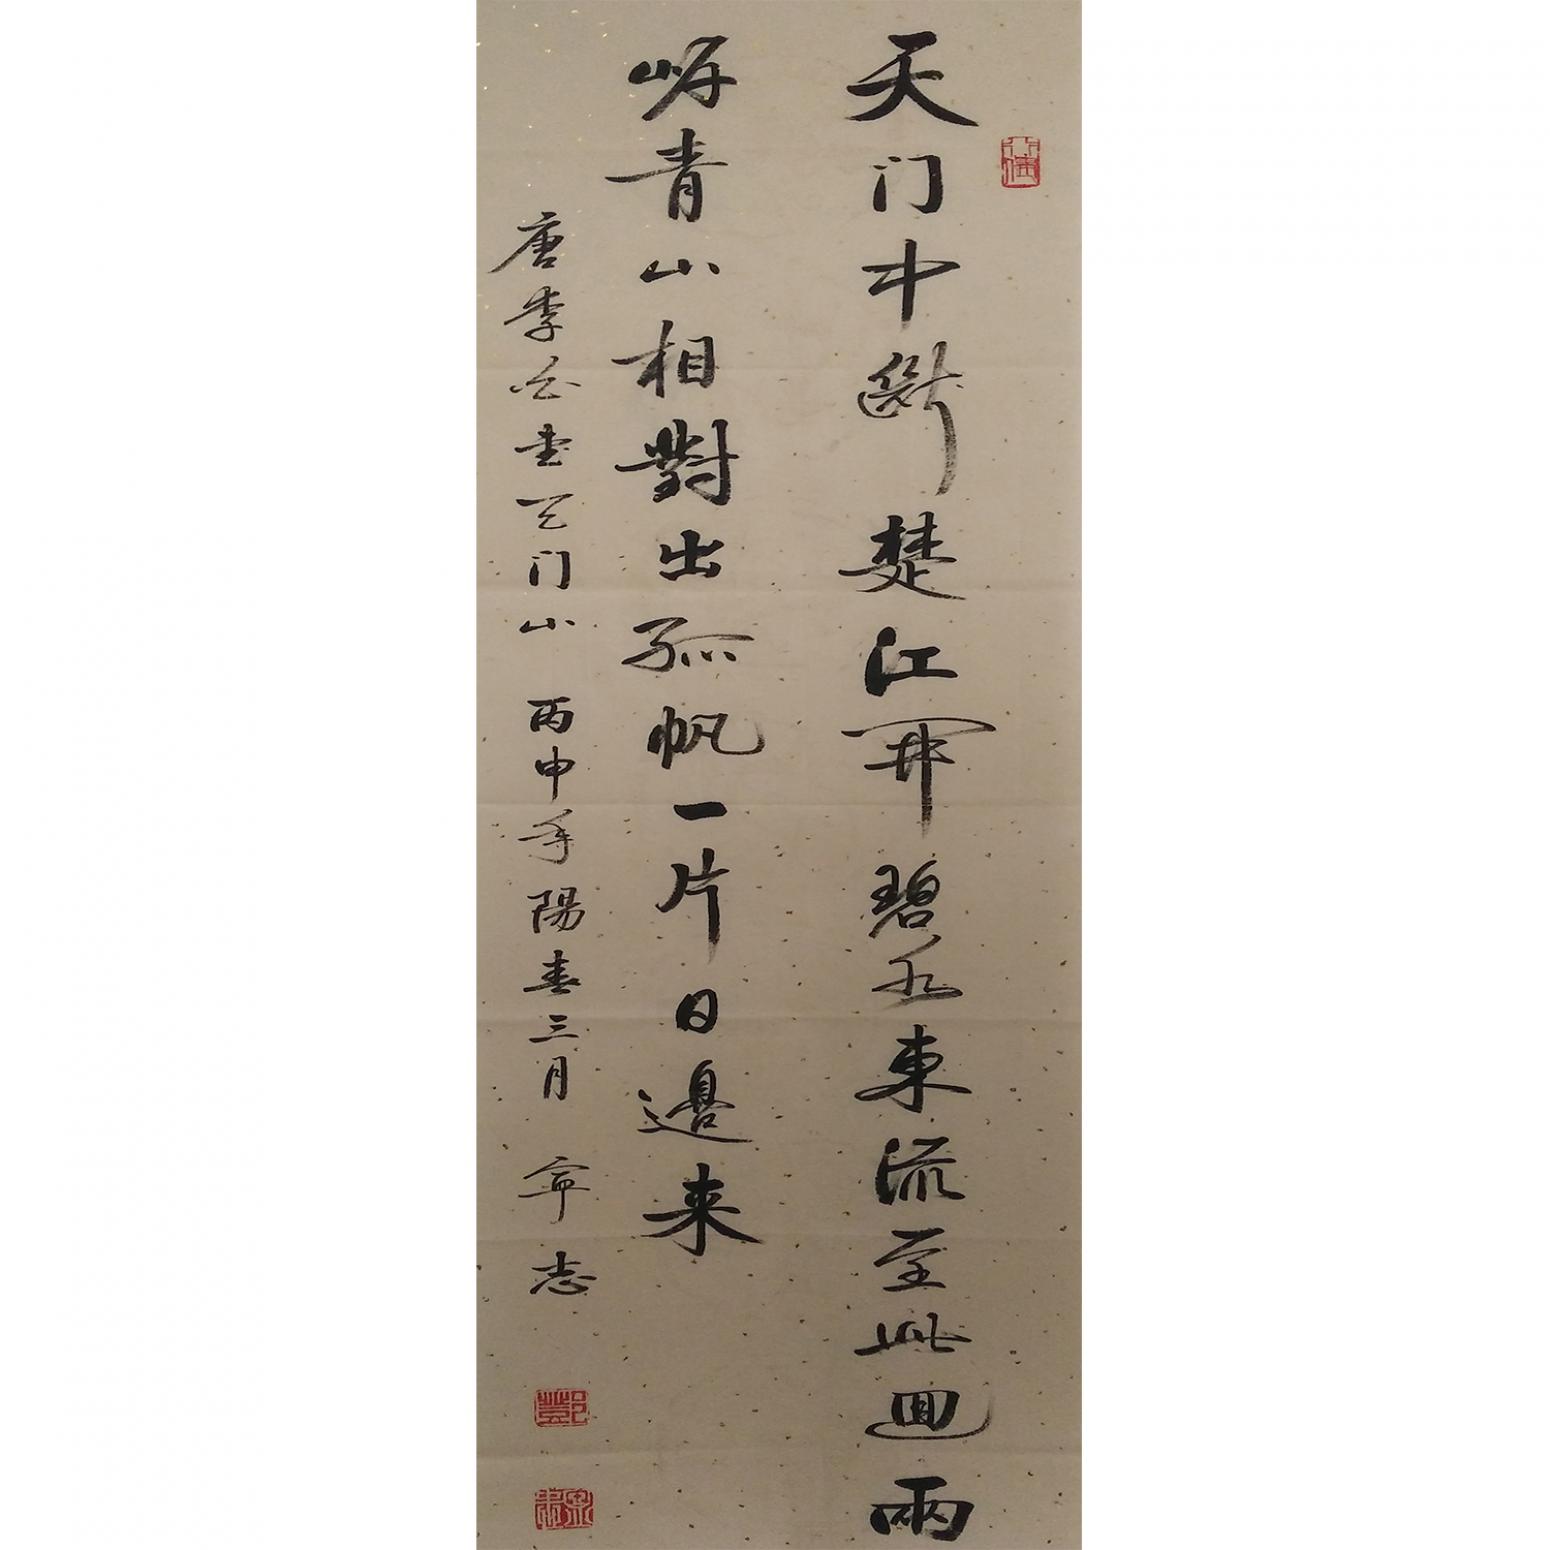 天门中断楚江開碧水東流至此迴兩
岸青山相對出孤帆一片日邊来
唐李白望天门山 丙申年陽春三月 宇志